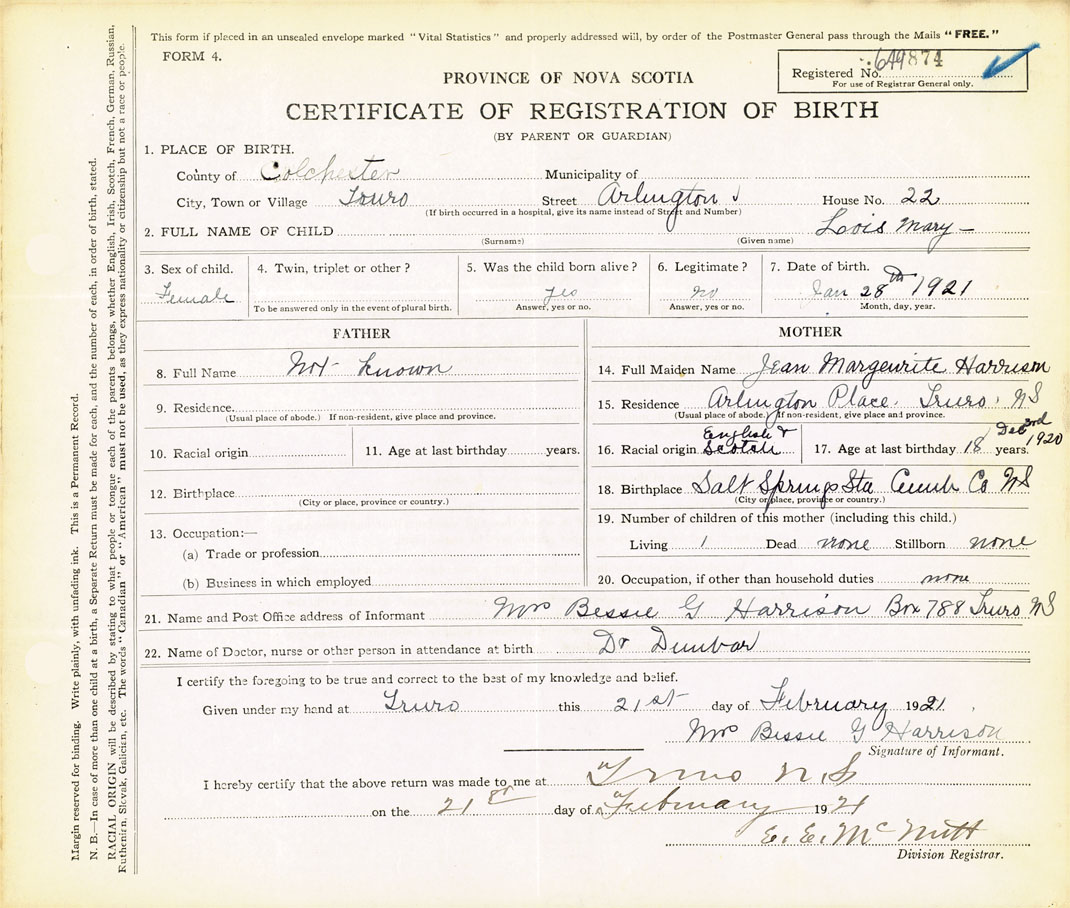 This form if placed in an unsealed envelope marked "Vital Statistics" and properly addressed will, by order of the Postmaster General pass through the Mails "FREE."
FORM 4.
Registered No. 649874
For use of Registrar General only.
PROVINCE OF NOVA SCOTIA
CERTIFICATE OF REGISTRATION OF BIRTH
(BY PARENT OR GUARDIAN)
1. PLACE OF BIRTH.
County of Colchester Municipality of
City, Town or Village Truro Street Arlington House No. 22
(If birth occurred in a hospital, give its name instead of Street and Number)
2. FULL NAME OF CHILD Lois Mary –
(Surname) (Given name)
3. Sex of child. 4. Twin, triplet or other? 5. Was the child born alive? 6. Legitimate? 7. Date of birth.
Female yes no Jan 28th 1921
To be answered only in the event of plural birth. Answer, yes or no. Answer, yes or no. Month, day, year.
FATHER
8. Full Name Not known
9. Residence.
(Usual place of abode.) If non-resident, give place and province.
10. Racial origin 11. Age at last birthday years.
12. Birthplace
(City or place, province or country.)
13. Occupation:—
(a) Trade or profession
(b) Business in which employed
MOTHER
14. Full Maiden Name Jean Margeurite Harrison
15. Residence Arlington Place. Truro. NS
(Usual place of abode.) If non-resident, give place and province.
16. Racial origin English & Scotch 17. Age at last birthday 18 years. Dec 3rd 1920
18. Birthplace Salt Springs Sta Cumb Co NS
(City or place, province or country.)
19. Number of children of this mother (including this child.)
Living 1 Dead none Stillborn none
20. Occupation, if other than household duties none
21. Name and Post Office address of Informant Mrs Bessie G Harrison Box 788 Truro NS
22. Name of Doctor, nurse or other person in attendance at birth Dr Dunbar
I certify the foregoing to be true and correct to the best of my knowledge and belief.
Given under my hand at Truro this 21st day of February 1921.
Mrs Bessie G Harrison
Signature of Informant.
I hereby certify that the above return was made to me at Truro N.S
on the 21st day of February 1921
E. E. McNutt
Division Registrar.
Margin reserved for binding. Write plainly, with unfading ink. This is a Permanent Record.
N. B.—In case of more than one child at a birth, a Separate Return must be made for each, and the number of each, in order of birth, stated.
RACIAL ORIGIN will be described by stating to what people or tongue each of the parents belongs, whether English, Irish, Scotch, French, German, Russian,
Ruthenian, Slovak, Galicien, etc. The words "Canadian" or "American" must not be used, as they express nationality or citizenship but not a race or people.